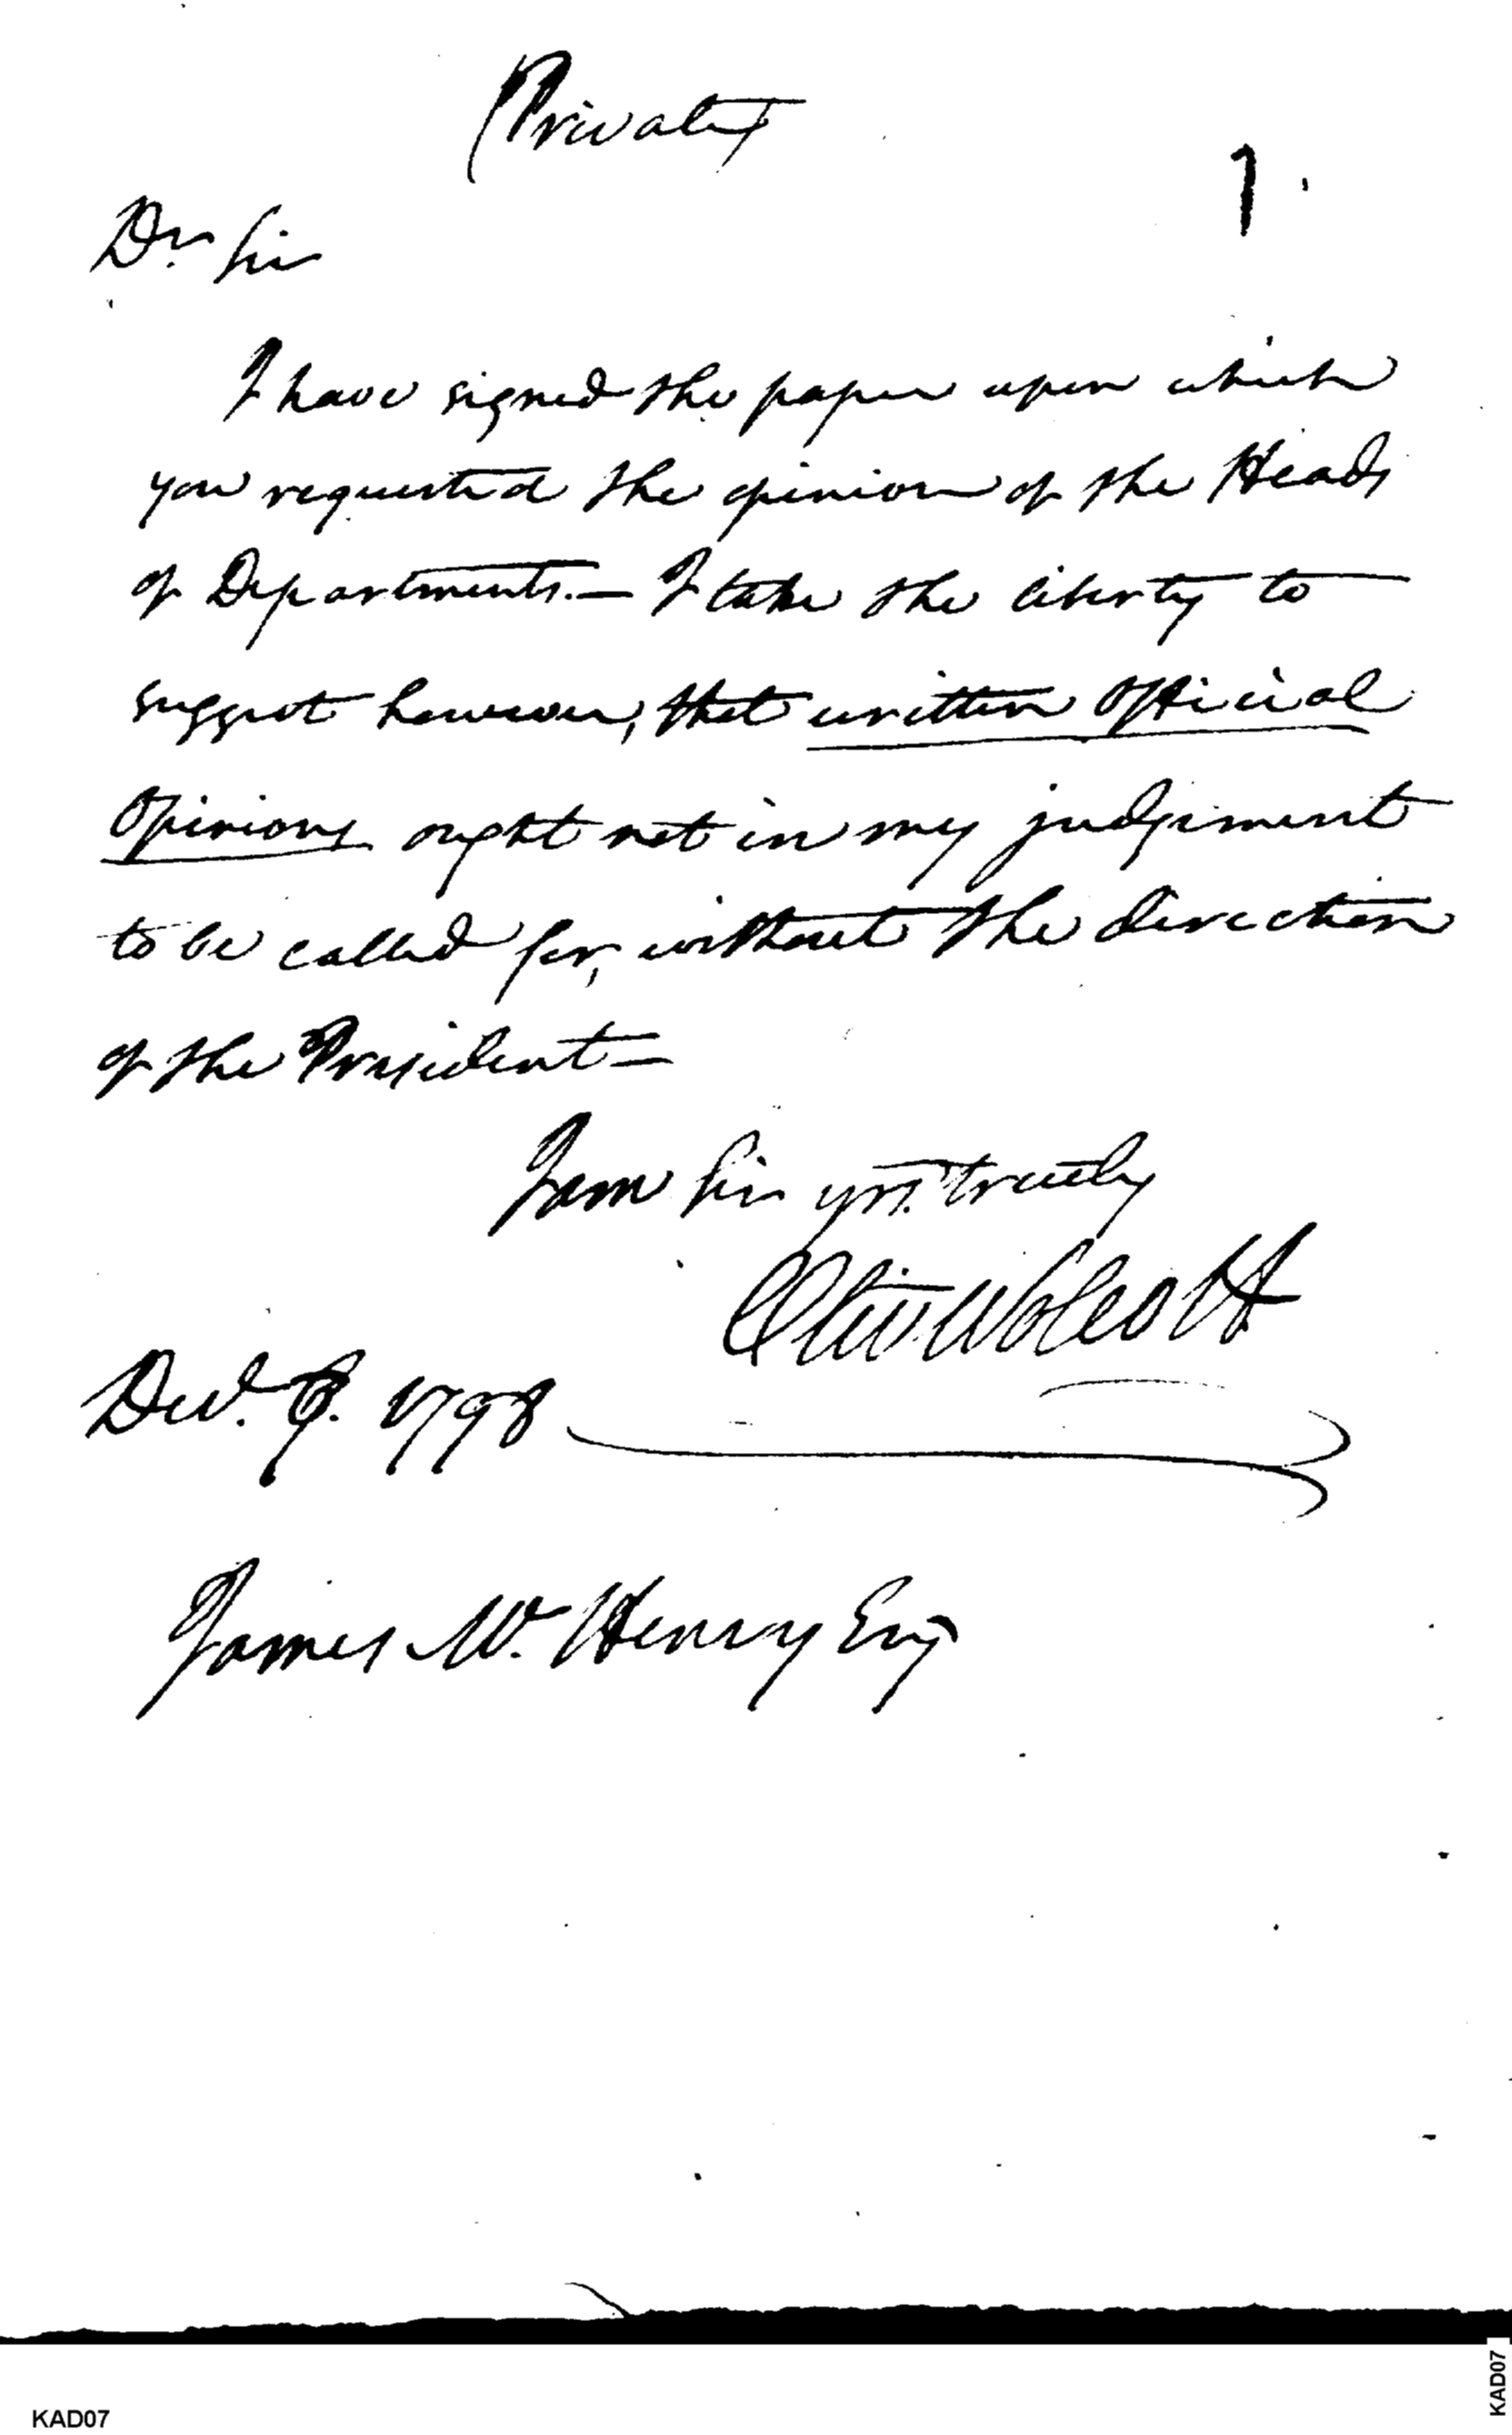 (Private)
1.
Dr. Sir
I have signed the paper upon which
you requested the opinion of the Heads
of Departments. — I take the liberty to
suggest however, that written official
Opinions ought not in my judgement
to be called for, without the direction
of the President —
I am Sir yrs. truely
Oliv. Wolcott
Dec. 1798
James Mc. Henry Esq
KAD07
KAD07